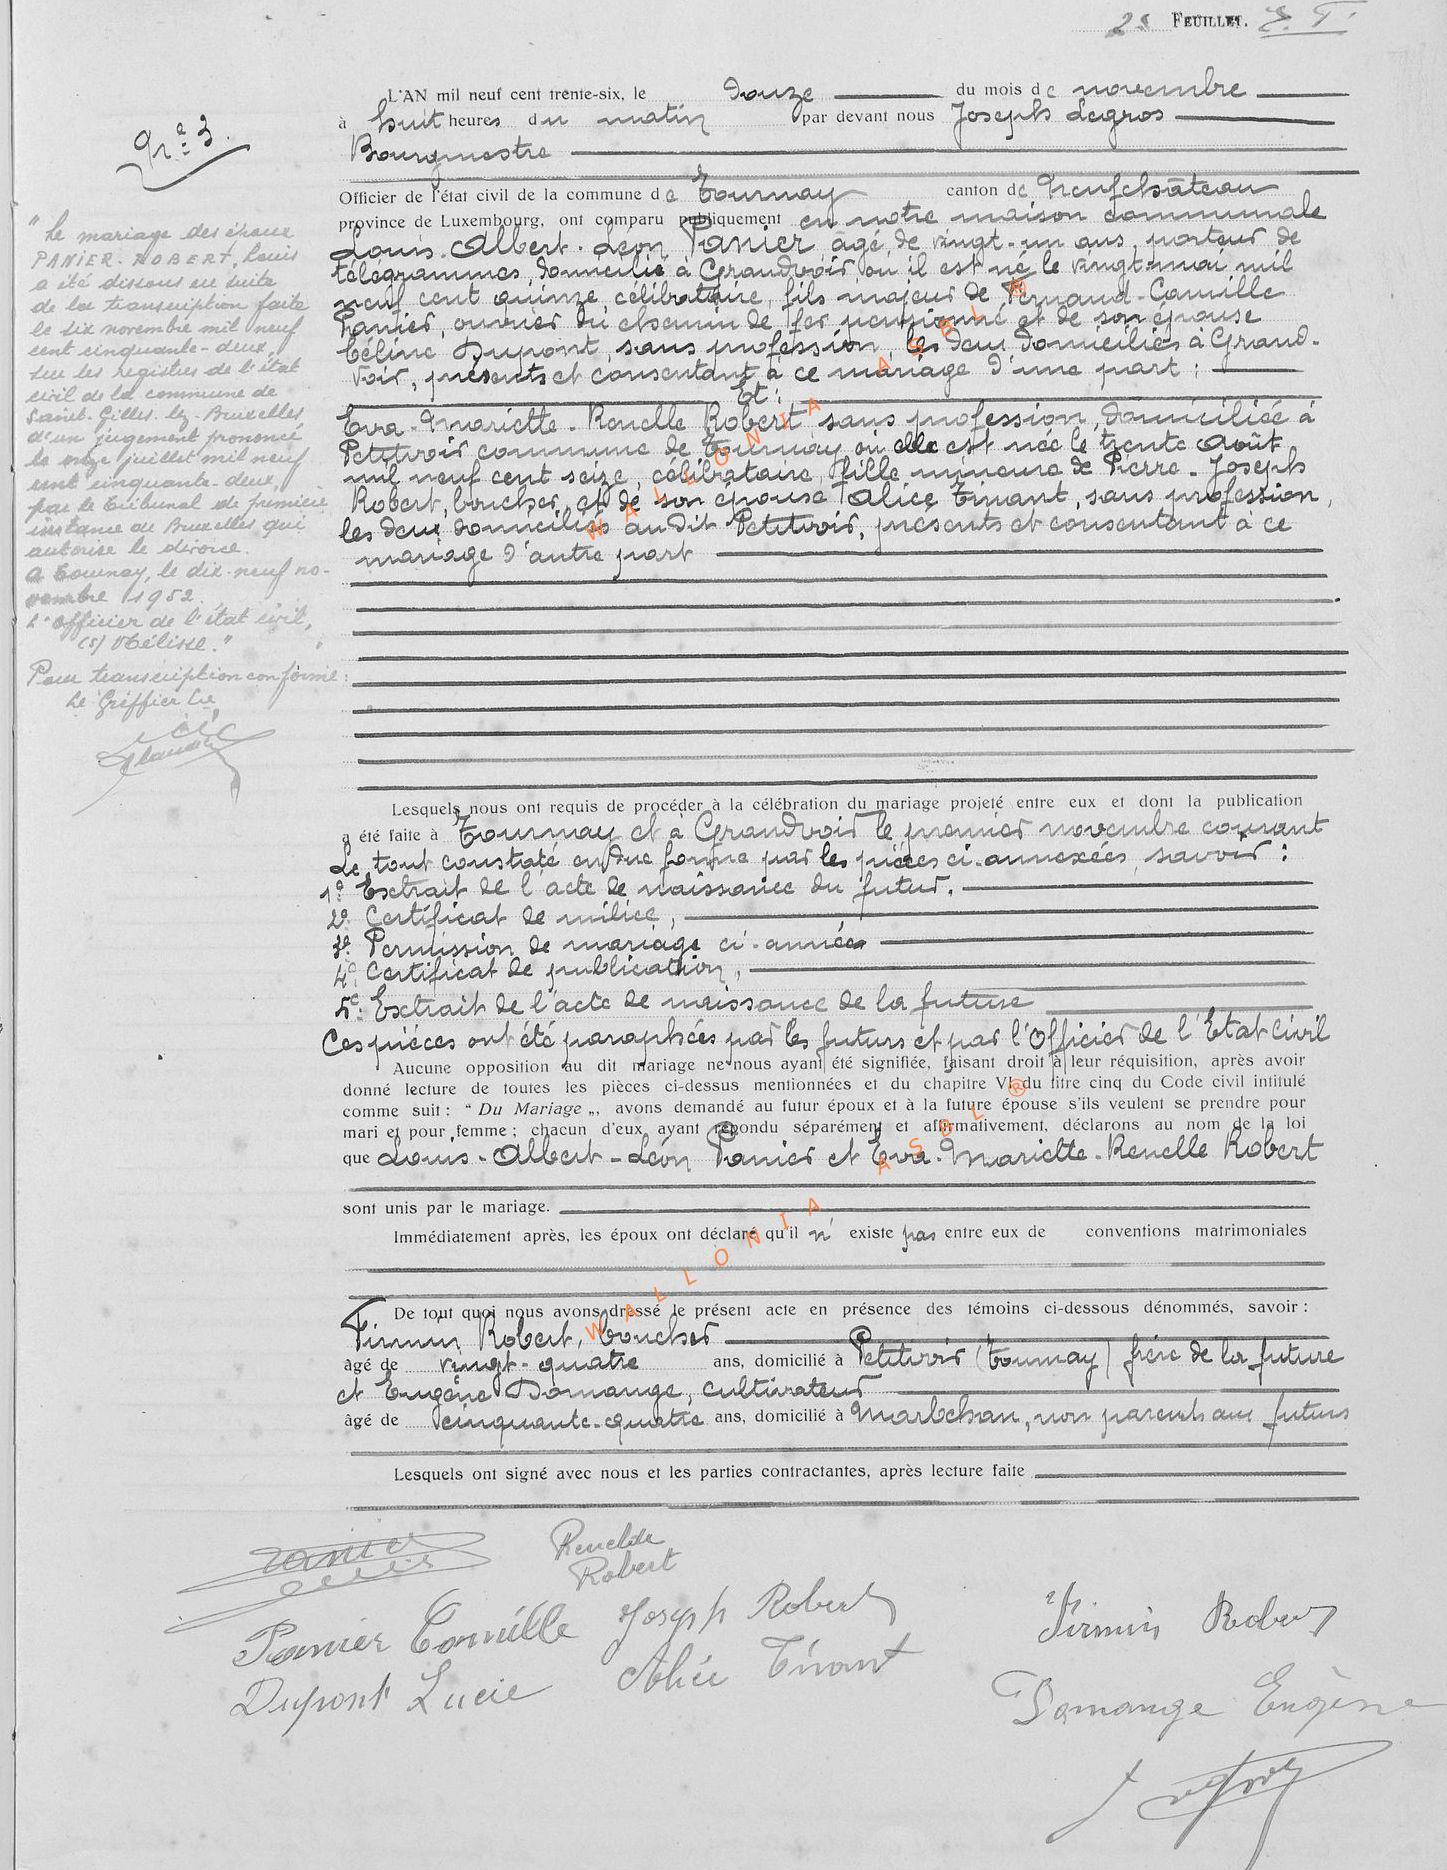 25 FEUILLET. J. T.
L'AN mil neuf cent trente-six, le douze du mois de novembre
à huit heures du matin par devant nous Joseph Legros
Bourgmestre
Officier de l'état civil de la commune de Tournay canton de Neufchâteau
province de Luxembourg, ont comparu publiquement en notre maison communale
Louis-Albert-Léon Panier, âgé de vingt-un ans, porteur de
télégrammes, domicilié à Grandvoir où il est né le vingt mai mil
neuf cent quinze, célibataire, fils majeur de Fernand-Camille
Panier, ouvrier du chemin de fer pensionné et de son épouse
Céline Dupont, sans profession, les deux domiciliés à Grand-
voir, présents et consentant à ce mariage d'une part ;
Et :
Eva-Mariette-Renelle Robert sans profession, domiciliée à
Petitvoir commune de Tournay où elle est née le trente août
mil neuf cent seize, célibataire, fille mineure de Pierre-Joseph
Robert, boucher, et de son épouse Alice Tinant, sans profession,
les deux domiciliés audit Petitvoir, présents et consentant à ce
mariage d'autre part
Nr: 3.
" Le mariage des époux
PANIER-ROBERT, Louis
a été dissous en suite
de la transcription faite
le six novembre mil neuf
cent cinquante-deux,
sur les registres de l'état
civil de la commune de
Saint-Gilles-lez-Bruxelles
d'un jugement prononcé
le onze juillet mil neuf
cent cinquante-deux,
par le Tribunal de première
instance de Bruxelles qui
autorise le divorce.
A Tournay, le dix-neuf no-
vembre 1952.
L'officier de l'état civil,
(s) Mélisse."
Pour transcription conforme :
Le Greffier
Lesquels nous ont requis de procéder à la célébration du mariage projeté entre eux et dont la publication
a été faite à Tournay et à Grandvoir le premier novembre courant
Le tout constaté en due forme par les pièces ci-annexées, savoir :
1º Extrait de l'acte de naissance du futur.
2º Certificat de milice,
3º Permission de mariage ci-année
4º Certificat de publication,
5º: Extrait de l'acte de naissance de la future
Ces pièces ont été paraphées par les futurs et par l'Officier de l'Etat Civil
Aucune opposition au dit mariage ne nous ayant été signifiée, faisant droit à leur réquisition, après avoir
donné lecture de toutes les pièces ci-dessus mentionnées et du chapitre VI du titre cinq du Code civil intitulé
comme suit : " Du Mariage „, avons demandé au futur époux et à la future épouse s'ils veulent se prendre pour
mari et pour femme ; chacun d'eux ayant répondu séparément et affirmativement, déclarons au nom de la loi
que Louis-Albert-Léon Panier et Eva-Mariette-Renelle Robert
sont unis par le mariage.
Immédiatement après, les époux ont déclaré qu'il n' existe pas entre eux de conventions matrimoniales
De tout quoi nous avons dressé le présent acte en présence des témoins ci-dessous dénommés, savoir :
Firmin Robert, boucher
âgé de vingt-quatre ans, domicilié à Petitvoir (Tournay) frère de la future
et Eugène Domange, cultivateur
âgé de cinquante-quatre ans, domicilié à Marbehan, non parent aux futurs
Lesquels ont signé avec nous et les parties contractantes, après lecture faite
Panier
Renelde
Robert
Panier Camille Joseph Robert Firmin Robert
Dupont Lucie Alice Tinant Domange Eugène
WALLONIA ASBL ®
WALLONIA ASBL ®